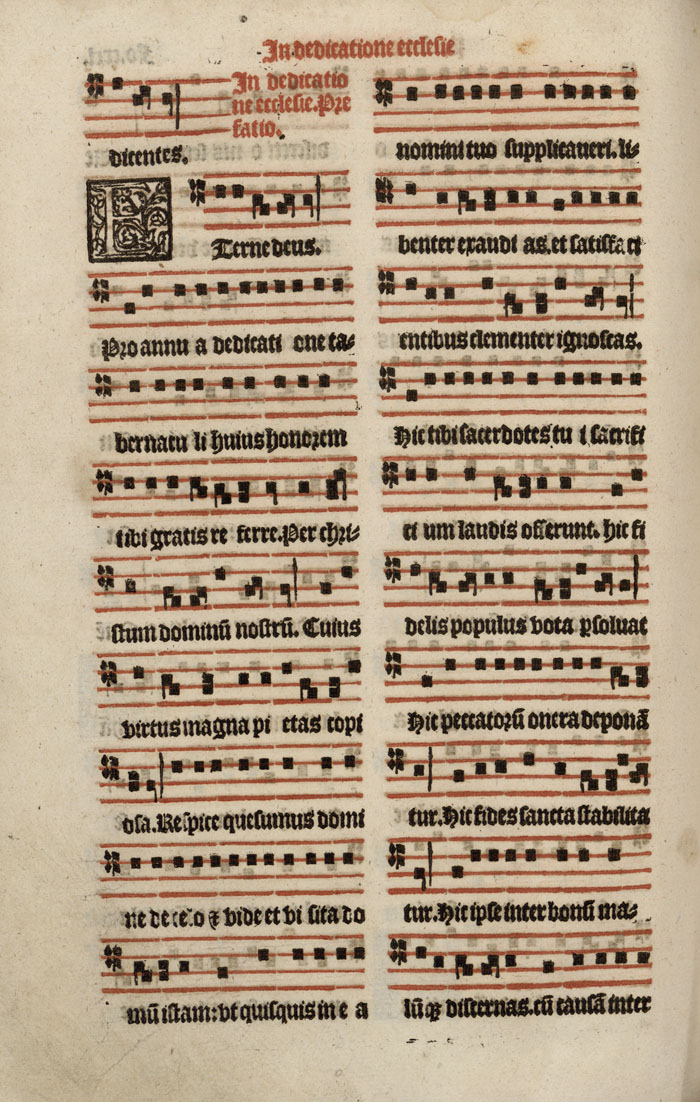 In dedicatione ecclesie
In dedicatio
ne ecclesie. Pre
fatio.
dicentes.
ETerne deus.
Pro annu a dedicati one ta-
bernacu li huius honorem
tibi gratis re ferre. Per chri-
stum dominū nostrū. Cuius
virtus magna pi etas copi
osa. Respice quesumus domi
ne de celo & vide et vi sita do
mū istam: vt quisquis in e a
nomini tuo supplicaueri. li-
benter exaudi as. et satisfaci
entibus clementer ignoscas.
Hic tibi sacerdotes tu i sacrifi
ci um laudis offerunt. hic fi
delis populus vota psoluat
Hic peccatorū onera deponā
tur. Hic fides sancta stabilita
tur. Hic ipse inter bonū ma-
lūqꝫ discernas. cū causā inter